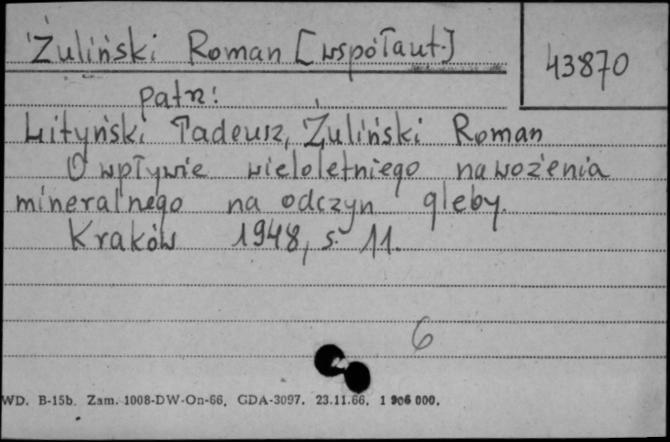 Żuliński Roman [współaut.]
43870
patrz:
Lityński Tadeusz, Żuliński Roman
O wpływie wieloletniego nawożenia
mineralnego na odczyn gleby.
Kraków 1948, s. 11.
6
WD. B-15b. Zam. 1008-DW-On-66, GDA-3097. 23.11.66. 1 906 000.